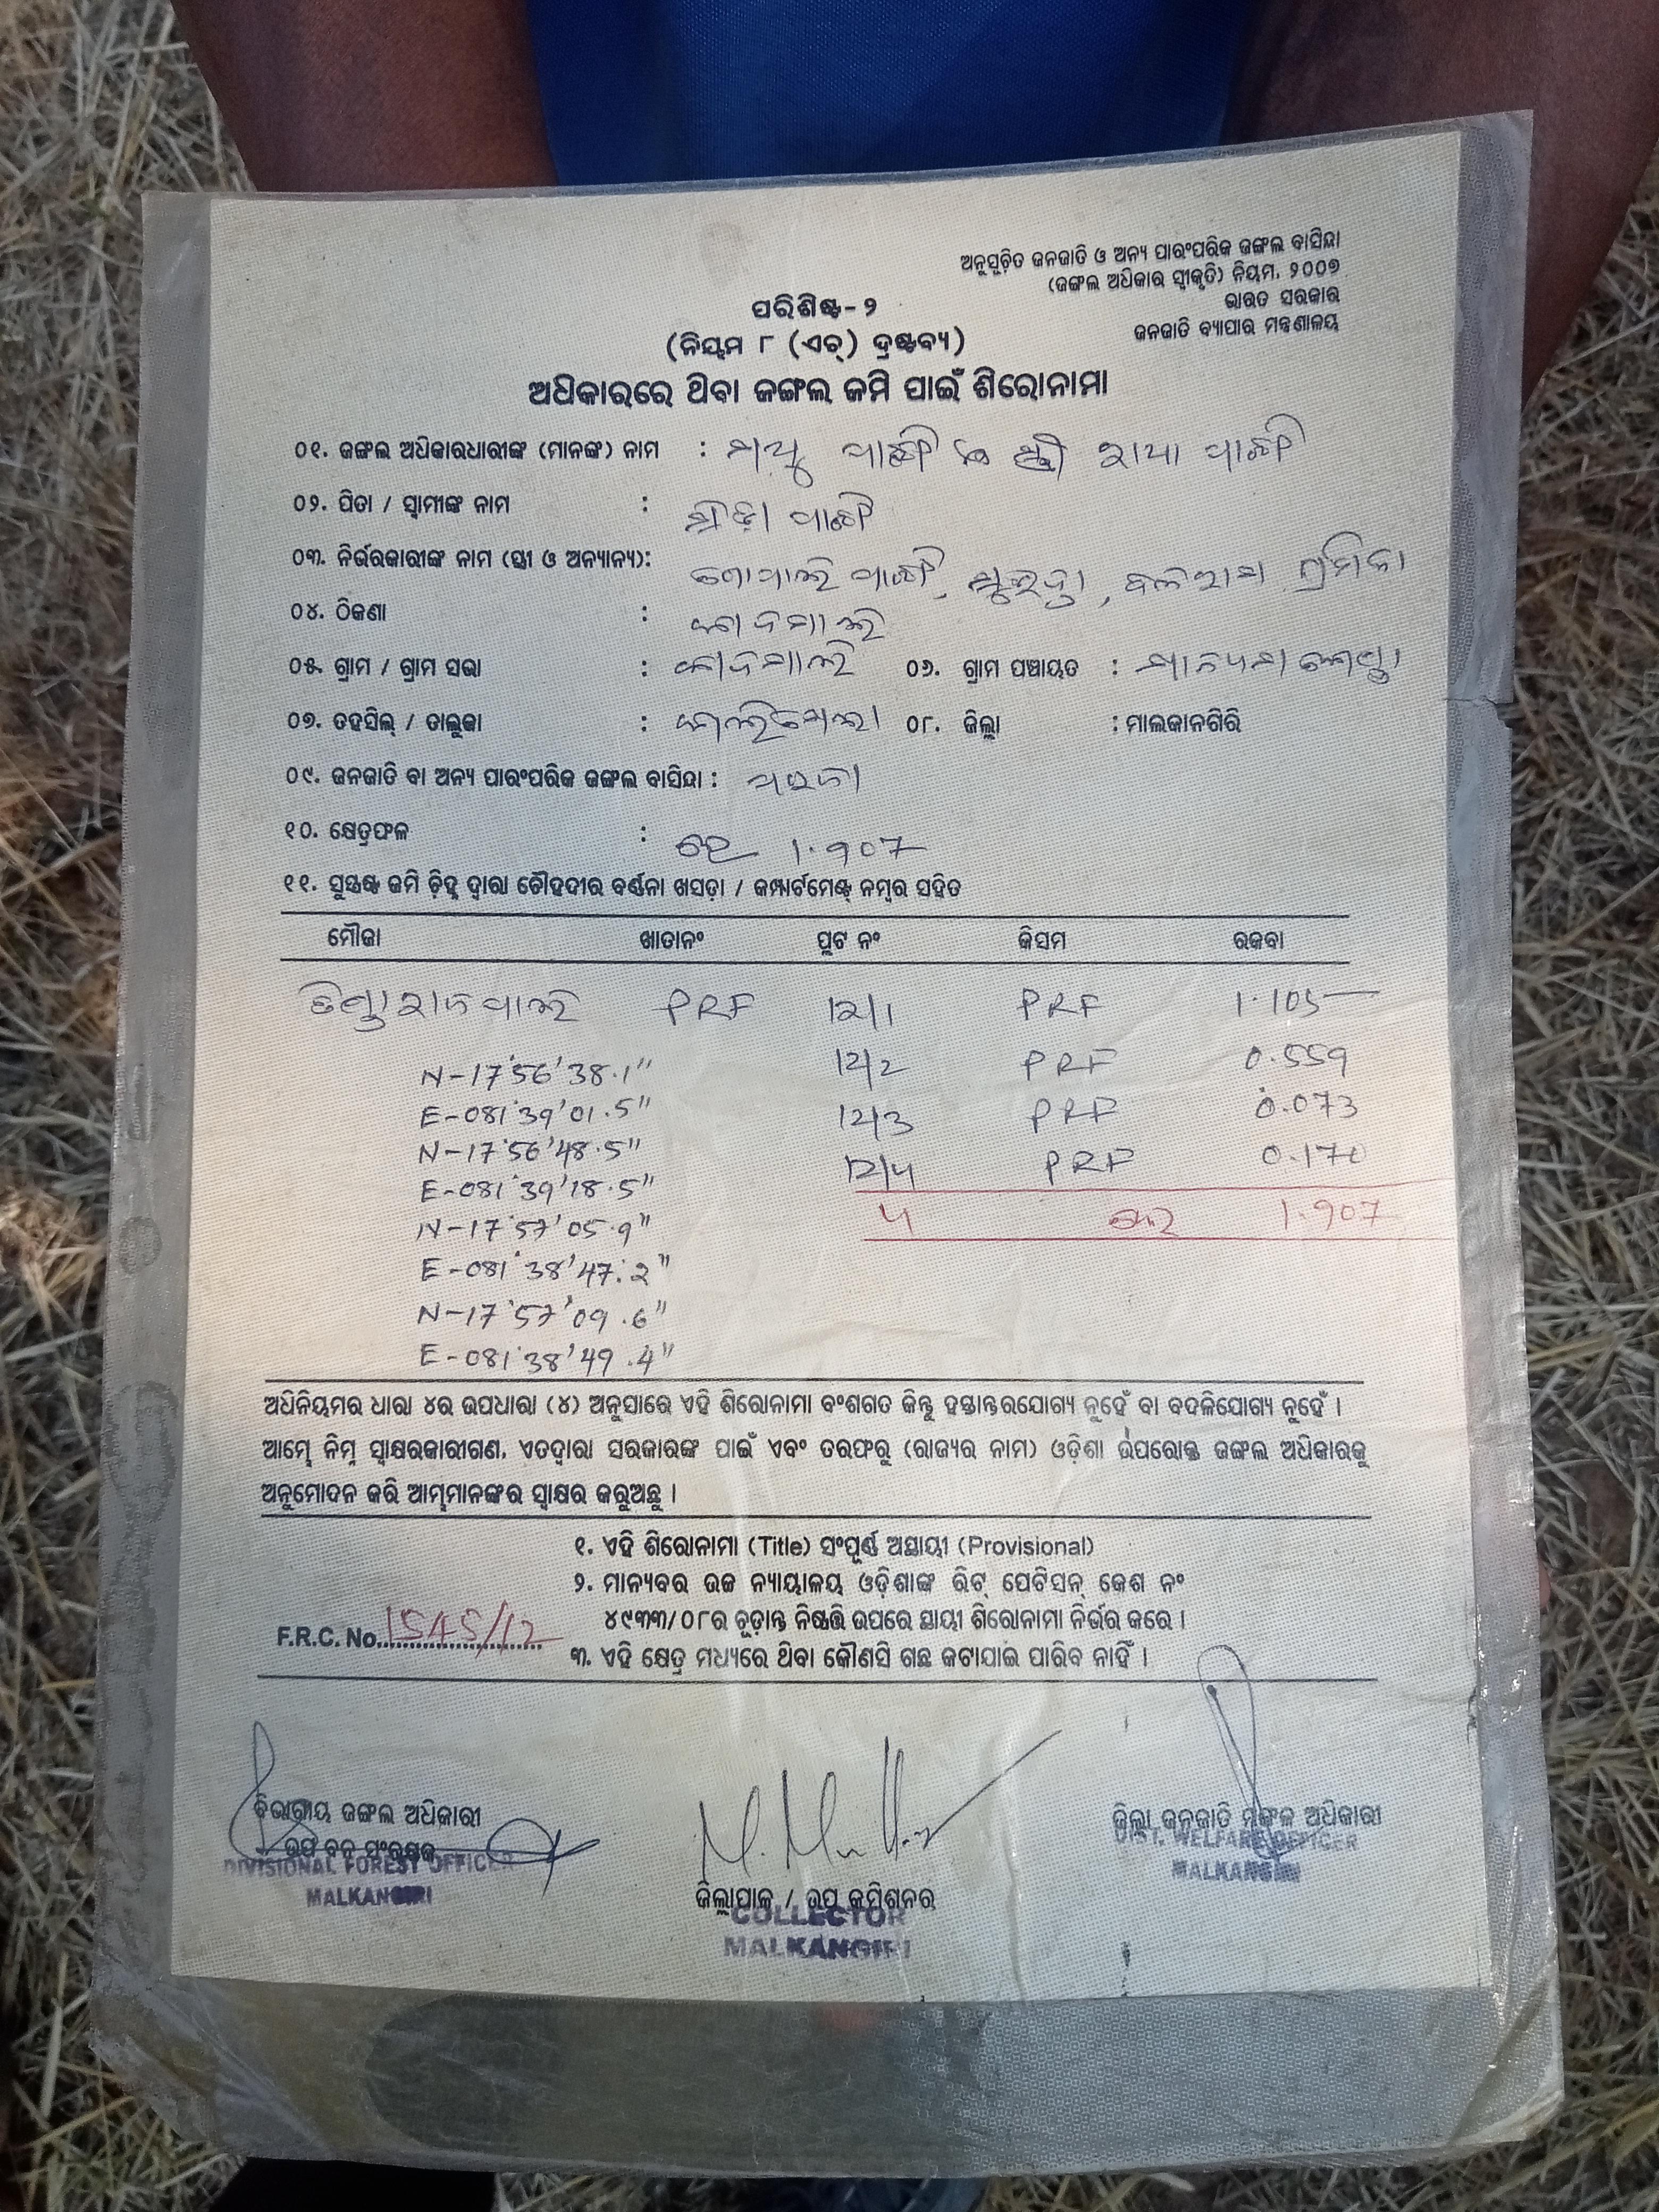 ଅନୁସୂଚିତ ଜନଜାତି ଓ ଅନ୍ୟ ପାରଂପରିକ ଜଙ୍ଗଲ ବାସିନ୍ଦା
(ଜଙ୍ଗଲ ଅଧିକାର ସ୍ୱୀକୃତି) ନିୟମ, ୨୦୦୭
ଭାରତ ସରକାର
ଜନଜାତି ବ୍ୟାପାର ମନ୍ତ୍ରଣାଳୟ
ପରିଶିଷ୍ଟ-୨
(ନିୟମ ୮ (ଏଚ୍) ଦ୍ରଷ୍ଟବ୍ୟ)
ଅଧିକାରରେ ଥିବା ଜଙ୍ଗଲ ଜମି ପାଇଁ ଶିରୋନାମା
୦୧. ଜଙ୍ଗଲ ଅଧିକାରଧାରୀଙ୍କ (ମାନଙ୍କ) ନାମ :
୦୨. ପିତା / ସ୍ୱାମୀଙ୍କ ନାମ :
୦୩. ନିର୍ଭରକାରୀଙ୍କ ନାମ (ସ୍ତ୍ରୀ ଓ ଅନ୍ୟାନ୍ୟ):
୦୪. ଠିକଣା :
୦୫. ଗ୍ରାମ / ଗ୍ରାମ ସଭା : ୦୬. ଗ୍ରାମ ପଞ୍ଚାୟତ :
୦୭. ତହସିଲ୍ / ତାଲୁକା : ୦୮. ଜିଲ୍ଲା : ମାଲକାନଗିରି
୦୯. ଜନଜାତି ବା ଅନ୍ୟ ପାରଂପରିକ ଜଙ୍ଗଲ ବାସିନ୍ଦା : ପରଜା
୧୦. କ୍ଷେତ୍ରଫଳ : ହେ 1.907
୧୧. ସୁସ୍ପଷ୍ଟ ଜମି ଚିହ୍ନ ଦ୍ୱାରା ଚୌହଦୀର ବର୍ଣ୍ଣନା ଖସଡ଼ା / କମ୍ପାର୍ଟମେଣ୍ଟ ନମ୍ବର ସହିତ
ମୌଜା ଖାତାନଂ ପ୍ଲଟ ନଂ କିସମ ରକବା
PRF 12/1 PRF 1.105
N-17°56'38.1" 12/2 PRF 0.559
E-081°39'01.5" 12/3 PRF 0.073
N-17°56'48.5" 12/4 PRF 0.170
E-081°39'18.5"
N-17°57'05.9" 4 1.907
E-081°38'47.2"
N-17°57'09.6"
E-081°38'49.4"
ଅଧିନିୟମର ଧାରା ୪ର ଉପଧାରା (୪) ଅନୁସାରେ ଏହି ଶିରୋନାମା ବଂଶଗତ କିନ୍ତୁ ହସ୍ତାନ୍ତରଯୋଗ୍ୟ ନୁହେଁ ବା ବଦଳିଯୋଗ୍ୟ ନୁହେଁ ।
ଆମ୍ଭେ ନିମ୍ନ ସ୍ୱାକ୍ଷରକାରୀଗଣ, ଏତଦ୍ୱାରା ସରକାରଙ୍କ ପାଇଁ ଏବଂ ତରଫରୁ (ରାଜ୍ୟର ନାମ) ଓଡ଼ିଶା ଉପରୋକ୍ତ ଜଙ୍ଗଲ ଅଧିକାରକୁ
ଅନୁମୋଦନ କରି ଆମ୍ଭମାନଙ୍କର ସ୍ୱାକ୍ଷର କରୁଅଛୁ ।
୧. ଏହି ଶିରୋନାମା (Title) ସଂପୂର୍ଣ୍ଣ ଅସ୍ଥାୟୀ (Provisional)
୨. ମାନ୍ୟବର ଉଚ୍ଚ ନ୍ୟାୟାଳୟ ଓଡ଼ିଶାଙ୍କ ରିଟ୍ ପେଟିସନ୍ କେଶ ନଂ
୪୯୩୩/୦୮ର ଚୂଡ଼ାନ୍ତ ନିଷ୍ପତ୍ତି ଉପରେ ସ୍ଥାୟୀ ଶିରୋନାମା ନିର୍ଭର କରେ ।
F.R.C. No. 1545/12
୩. ଏହି କ୍ଷେତ୍ର ମଧ୍ୟରେ ଥିବା କୌଣସି ଗଛ କଟାଯାଇ ପାରିବ ନାହିଁ ।
ବିଭାଗୀୟ ଜଙ୍ଗଲ ଅଧିକାରୀ
ଉପ ବନ ସଂରକ୍ଷକ
DIVISIONAL FOREST OFFICER
MALKANGIRI
ଜିଲ୍ଲାପାଳ / ଉପ କମିଶନର
COLLECTOR
MALKANGIRI
ଜିଲ୍ଲା ଜନଜାତି ମଙ୍ଗଳ ଅଧିକାରୀ
DIST. WELFARE OFFICER
MALKANGIRI